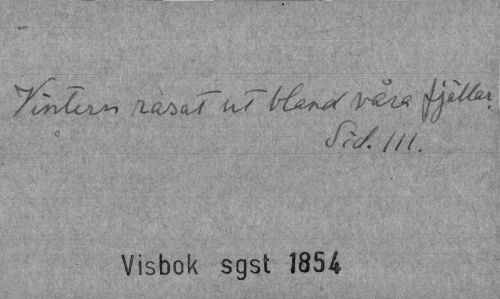 Vintern rasat ut bland våra fjällar,
Sid. 111.
Visbok sgst 1854